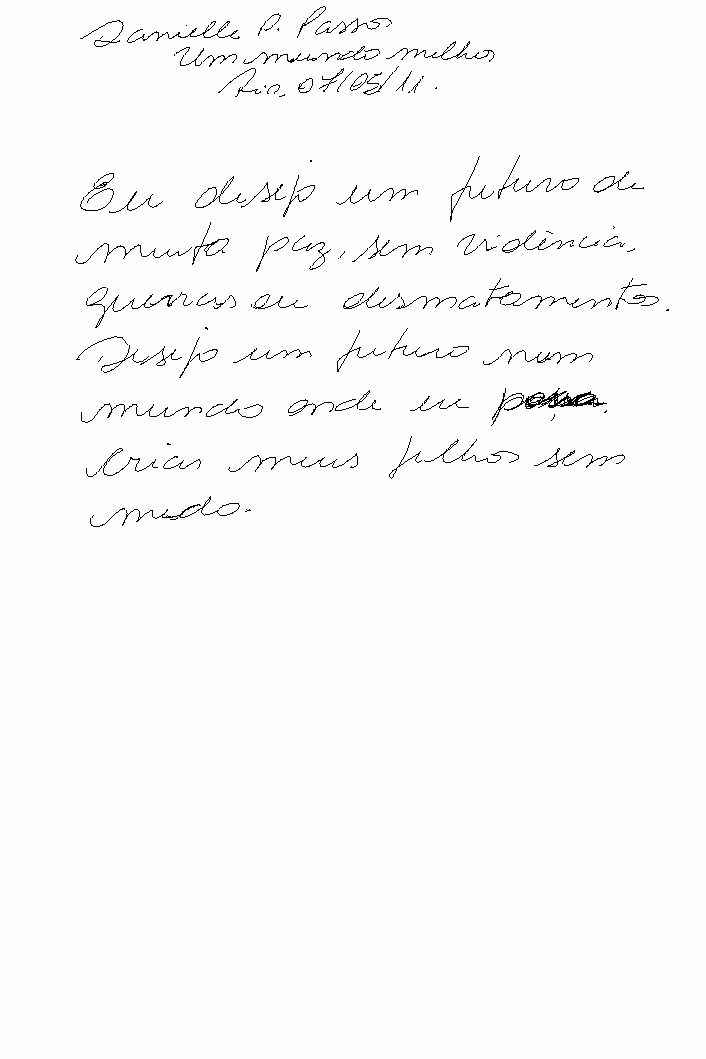 Danielle P. Passos
Um mundo melhor
Rio, 07/05/11.
Eu desejo um futuro de
muita paz, sem violência,
guerras ou desmatamentos.
Desejo um futuro num
mundo onde eu possa
criar meus filhos sem
medo.